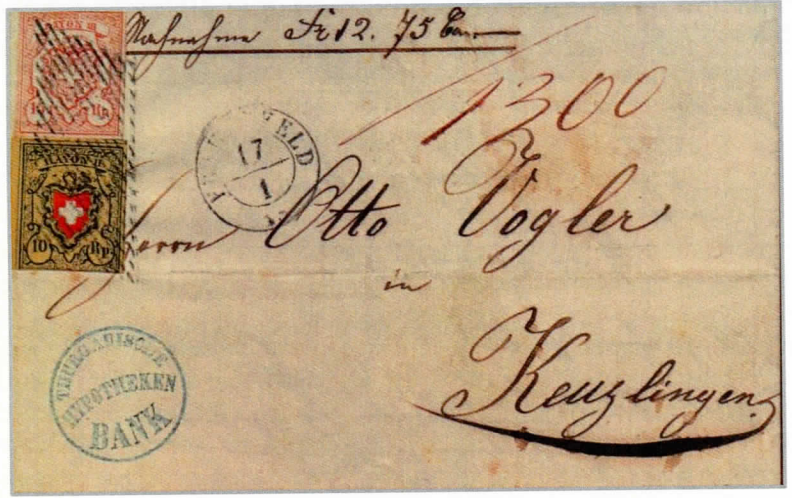 Nachnahme Fr 12. 75 Cen
1300
RAYON III
Rp.
FRAUENFELD
17
1
RAYON II.
10 Rp.
Herrn Otto Vogler
in
Kreuzlingen
THURGAUISCHE
HYPOTHEKEN
BANK